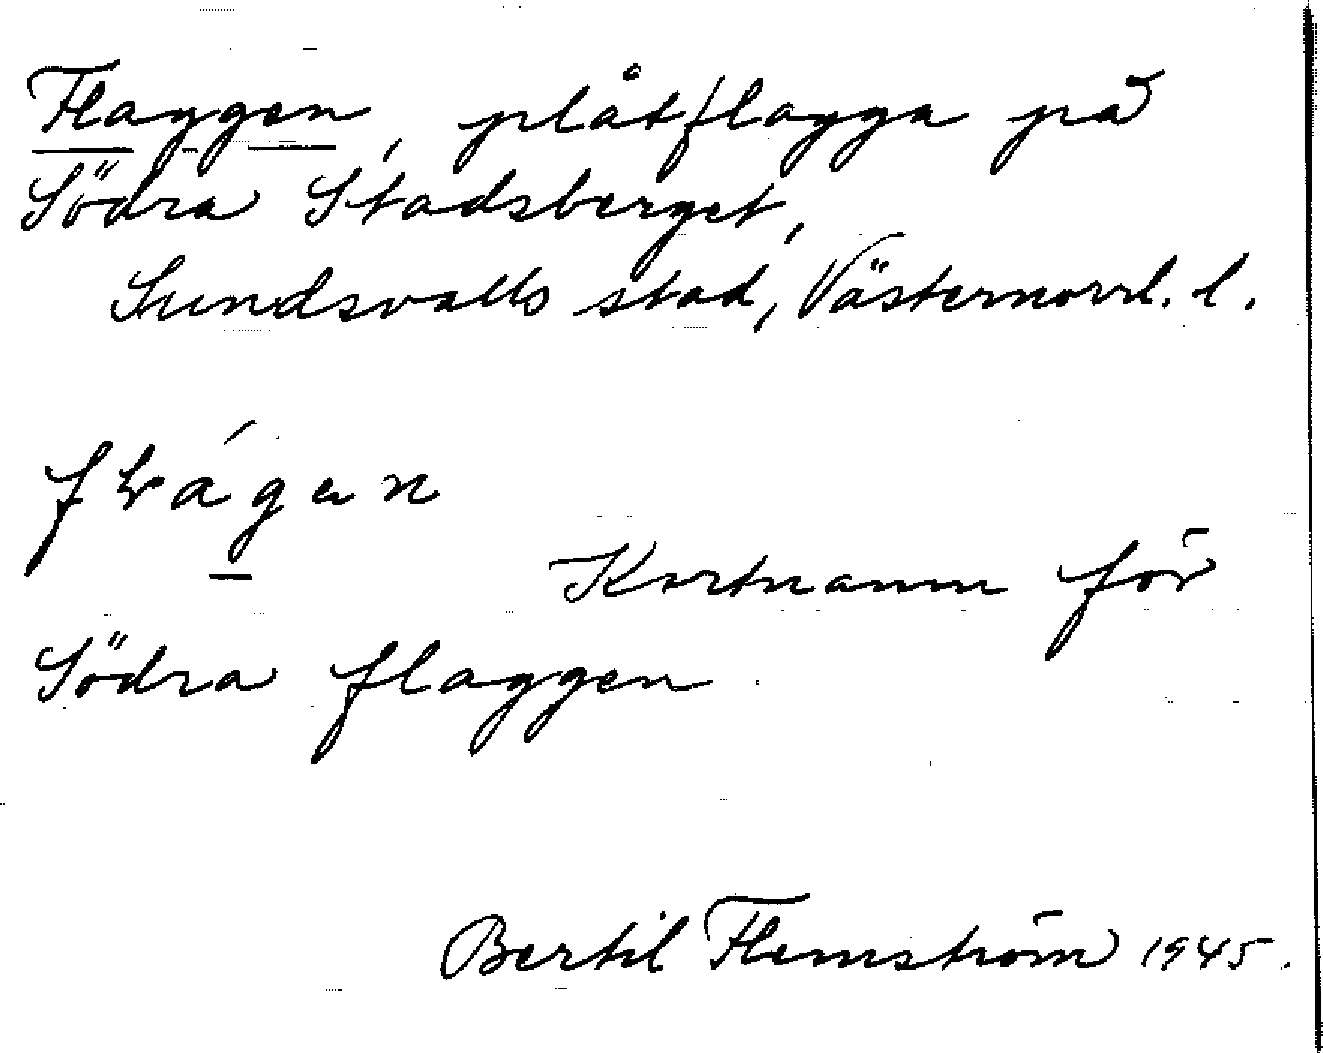 Flaggen, plåtflagga på
Södra Stadsberget,
Sundsvalls stad, Västernorrl. l.
Kortnamn för
Södra flaggen.
Bertil Flemström 1945.